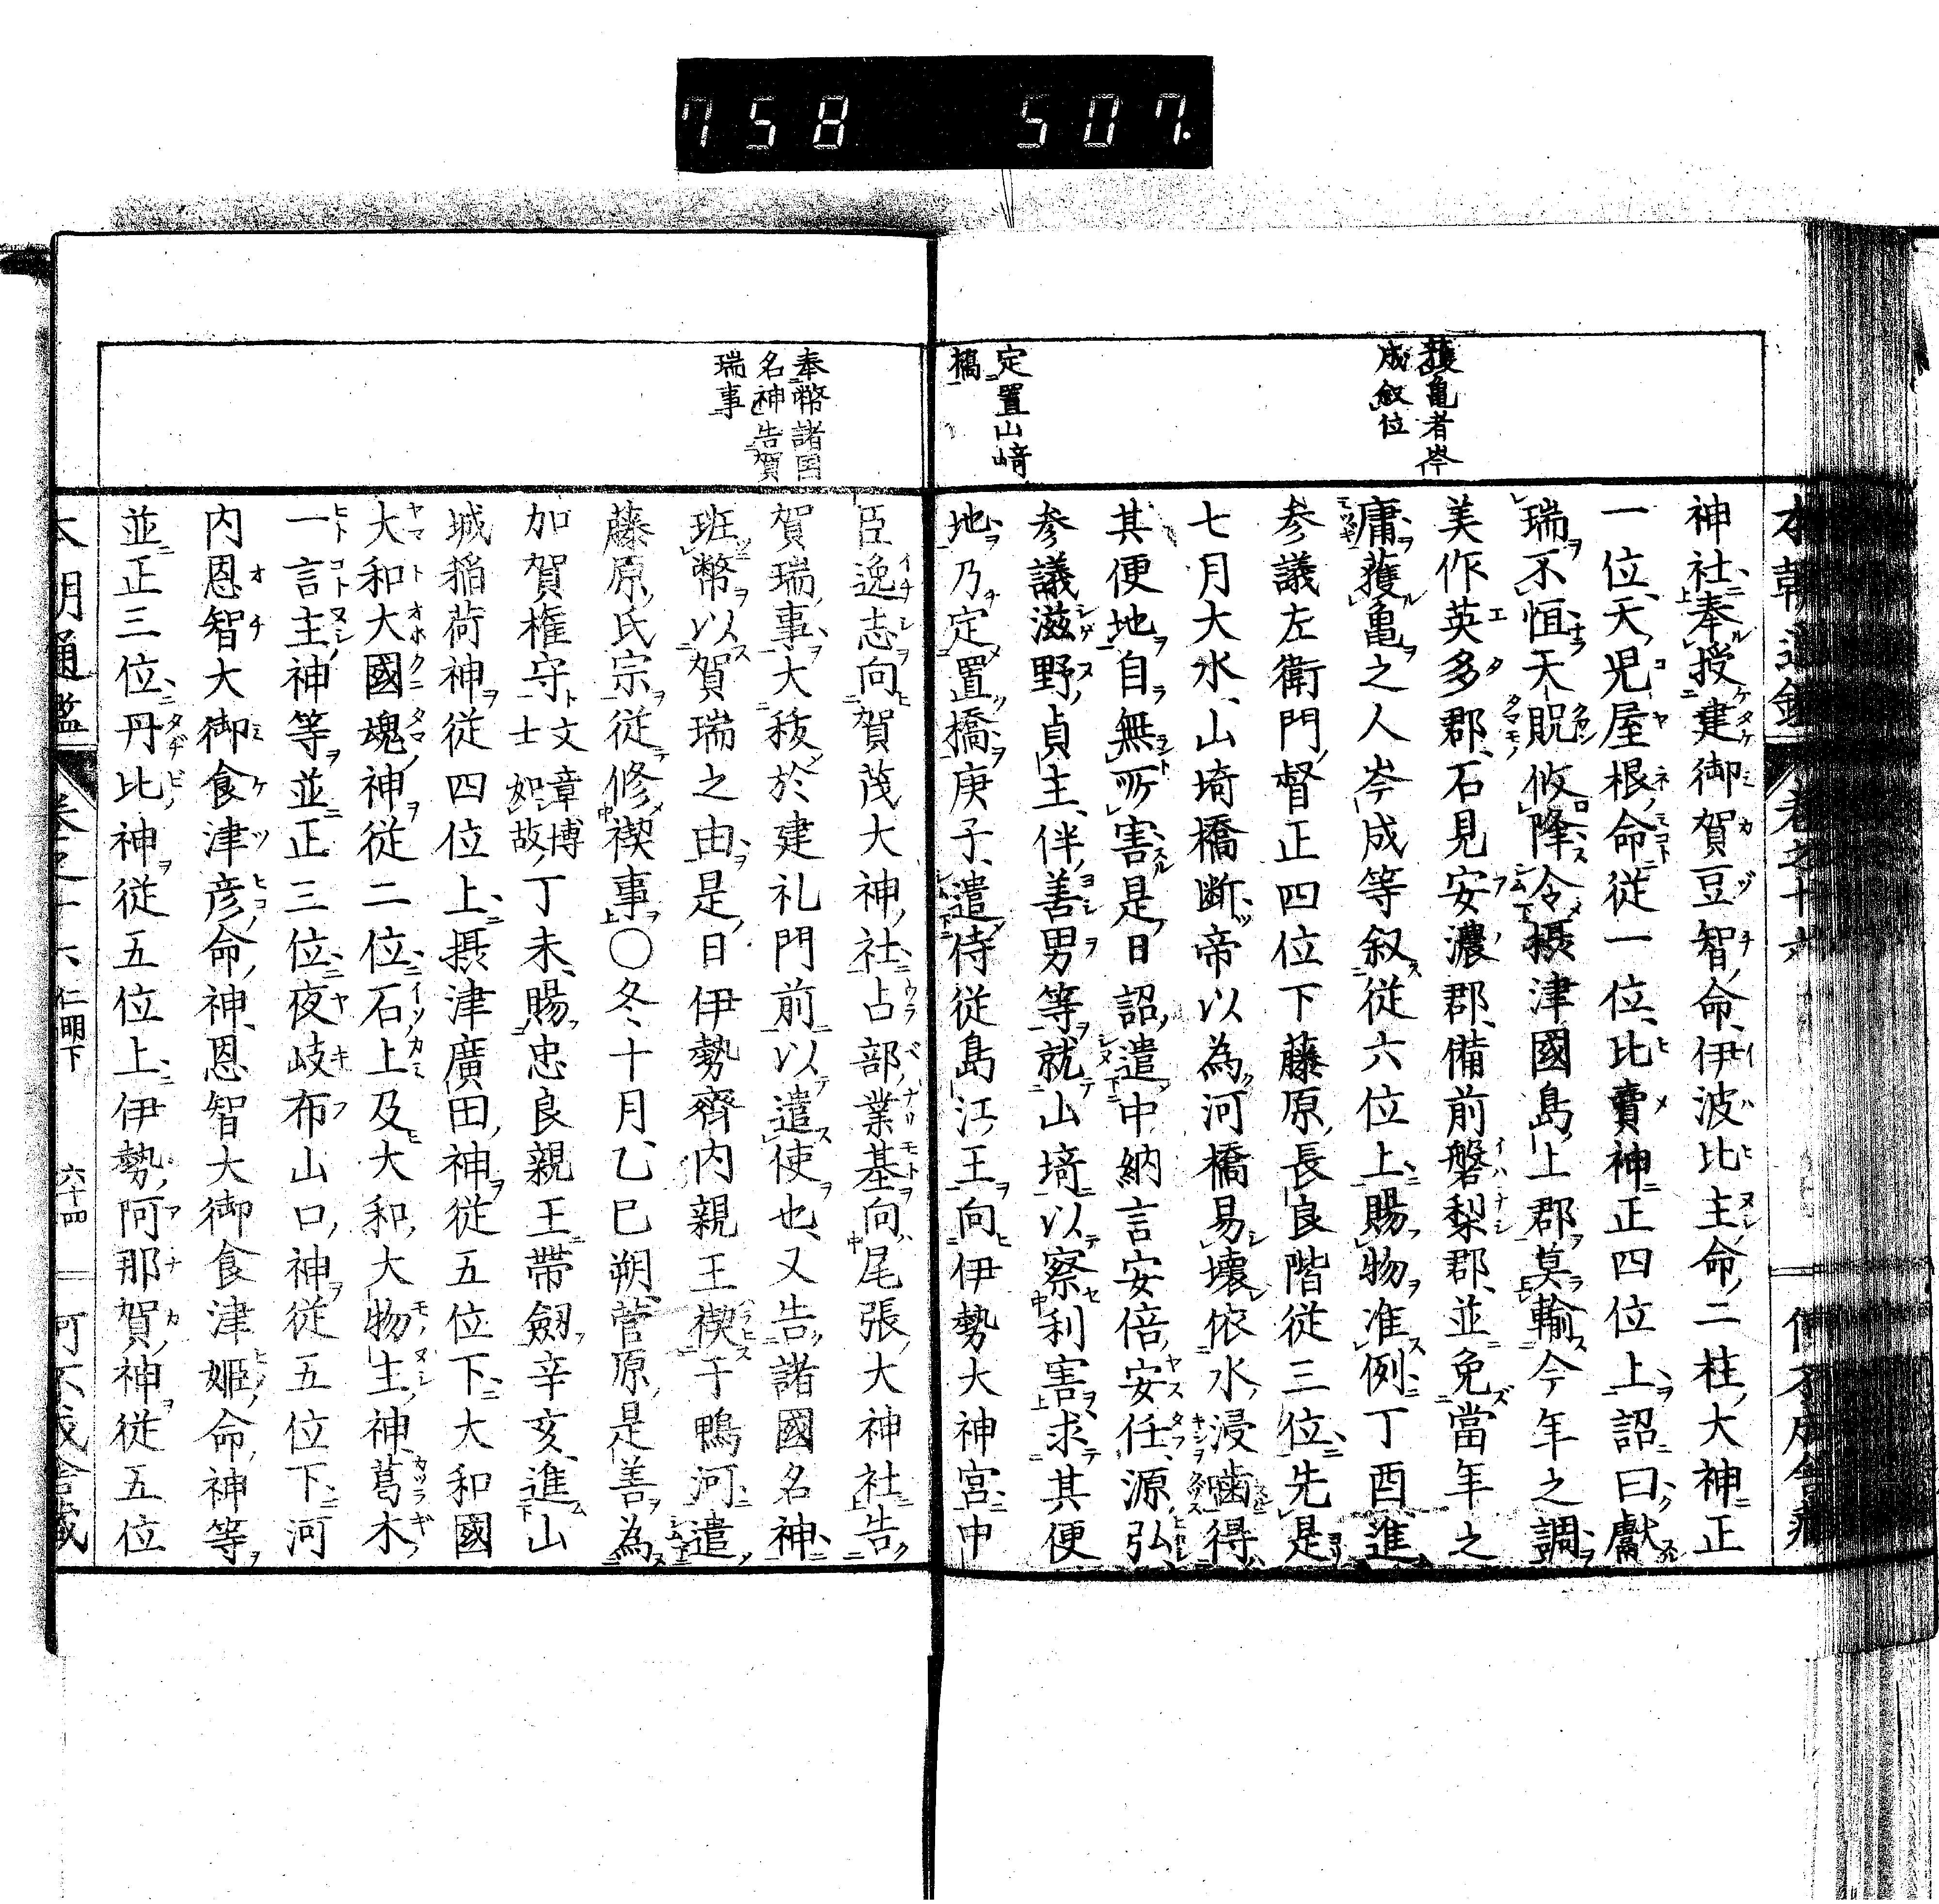 758 507.
獲亀者岑
成叙位
定置山﨑
橋
神社奉授建御賀豆智命伊波比主命二柱大神正
一位天児屋根命従一位比賣神正四位上詔曰獻
瑞不恒天貺攸降令摂津國島上郡莫輸今年之調
美作英多郡石見安濃郡備前磐梨郡並免當年之
庸獲亀之人岑成等叙従六位上賜物准例丁酉進
参議左衛門督正四位下藤原長良階従三位先是
七月大水山埼橋断帝以為河橋易壊依水浸噛得
其便地自無所害是日詔遣中納言安倍安任源弘
参議滋野貞主伴善男等就山埼以察利害求其便
地乃定置橋庚子遣侍従島江王向伊勢大神宮中
奉幣諸国
名神告賀
瑞事
臣逸志向賀茂大神社占部業基向尾張大神社告
賀瑞事大秡於建礼門前以遣使也又告諸國名神
班幣以賀瑞之由是日伊勢齊内親王禊于鴨河遣
藤原氏宗従修禊事〇冬十月乙巳朔菅原是善為
加賀権守文章博士如故丁未賜忠良親王帯劔辛亥進山
城稻荷神従四位上摂津廣田神従五位下大和國
大和大國魂神従二位石上及大和大物主神葛木
一言主神等並正三位夜岐布山口神従五位下河
内恩智大御食津彦命神恩智大御食津姫命神等
並正三位丹比神従五位上伊勢阿那賀神従五位
本朝通鑑 卷之十六 仁明下 六十四